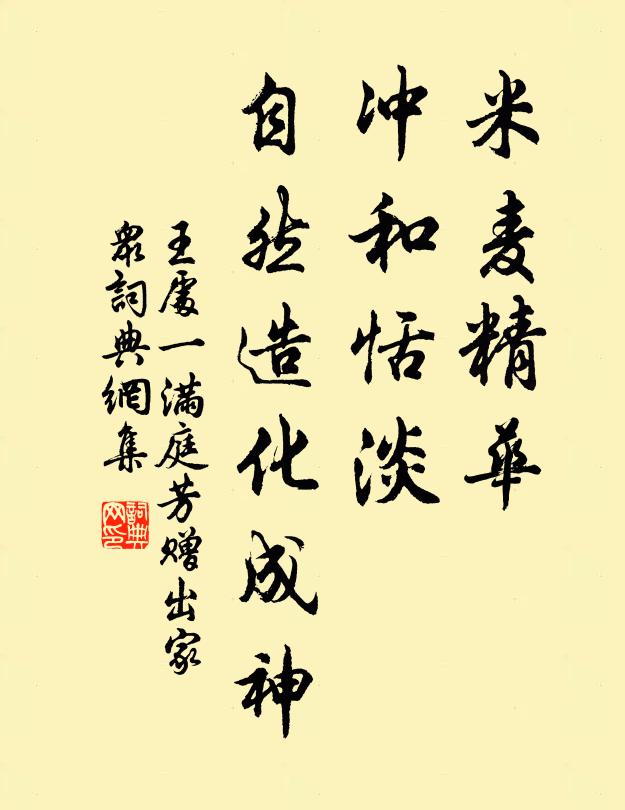 米麦精華
冲和恬淡
自然造化成神
王處一满庭芳赠出家
眾詞典網集
詞典网印